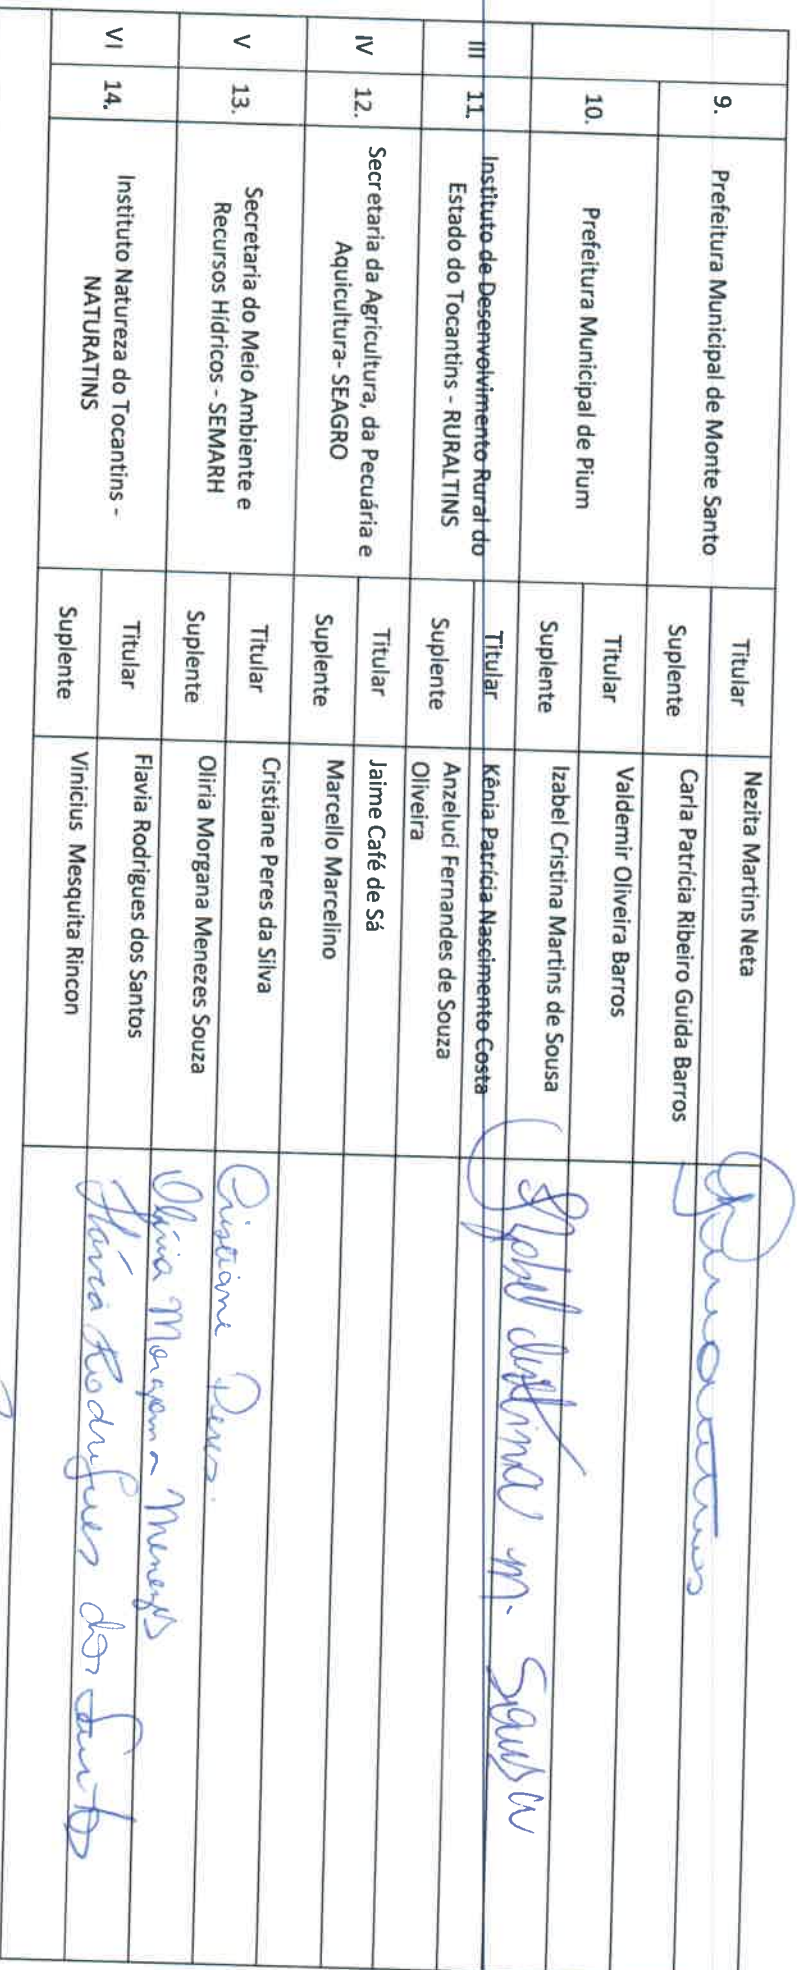 9. Prefeitura Municipal de Monte Santo
Titular Nezita Martins Neta
Suplente Carla Patrícia Ribeiro Guida Barros
10. Prefeitura Municipal de Pium
Titular Valdemir Oliveira Barros
Suplente Izabel Cristina Martins de Sousa Izabel Cristina M. Sousa
III 11. Instituto de Desenvolvimento Rural do
Estado do Tocantins - RURALTINS
Titular Kênia Patrícia Nascimento Costa
Suplente Anzeluci Fernandes de Souza
Oliveira
IV 12. Secretaria da Agricultura, da Pecuária e
Aquicultura- SEAGRO
Titular Jaime Café de Sá
Suplente Marcello Marcelino
V 13. Secretaria do Meio Ambiente e
Recursos Hídricos - SEMARH
Titular Cristiane Peres da Silva Cristiane Peres.
Suplente Oliria Morgana Menezes Souza Olíria Morgana Menezes
VI 14. Instituto Natureza do Tocantins -
NATURATINS
Titular Flavia Rodrigues dos Santos Flávia Rodrigues dos Santos
Suplente Vinicius Mesquita Rincon